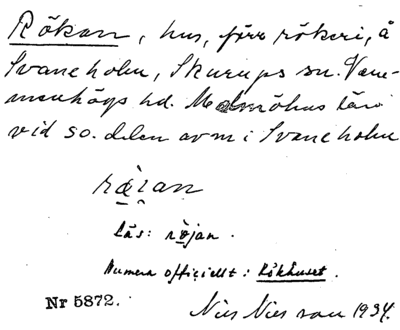 Rökan, hus, förr rökeri, å
Svaneholm, Skurups sn. Vem-
menhögs hd. Malmöhus län
vid so. delen av m i Svaneholm
Läs: röjan.
Numera officiellt: Rökhuset.
Nr 5872.
Nils Nilsson 1934.